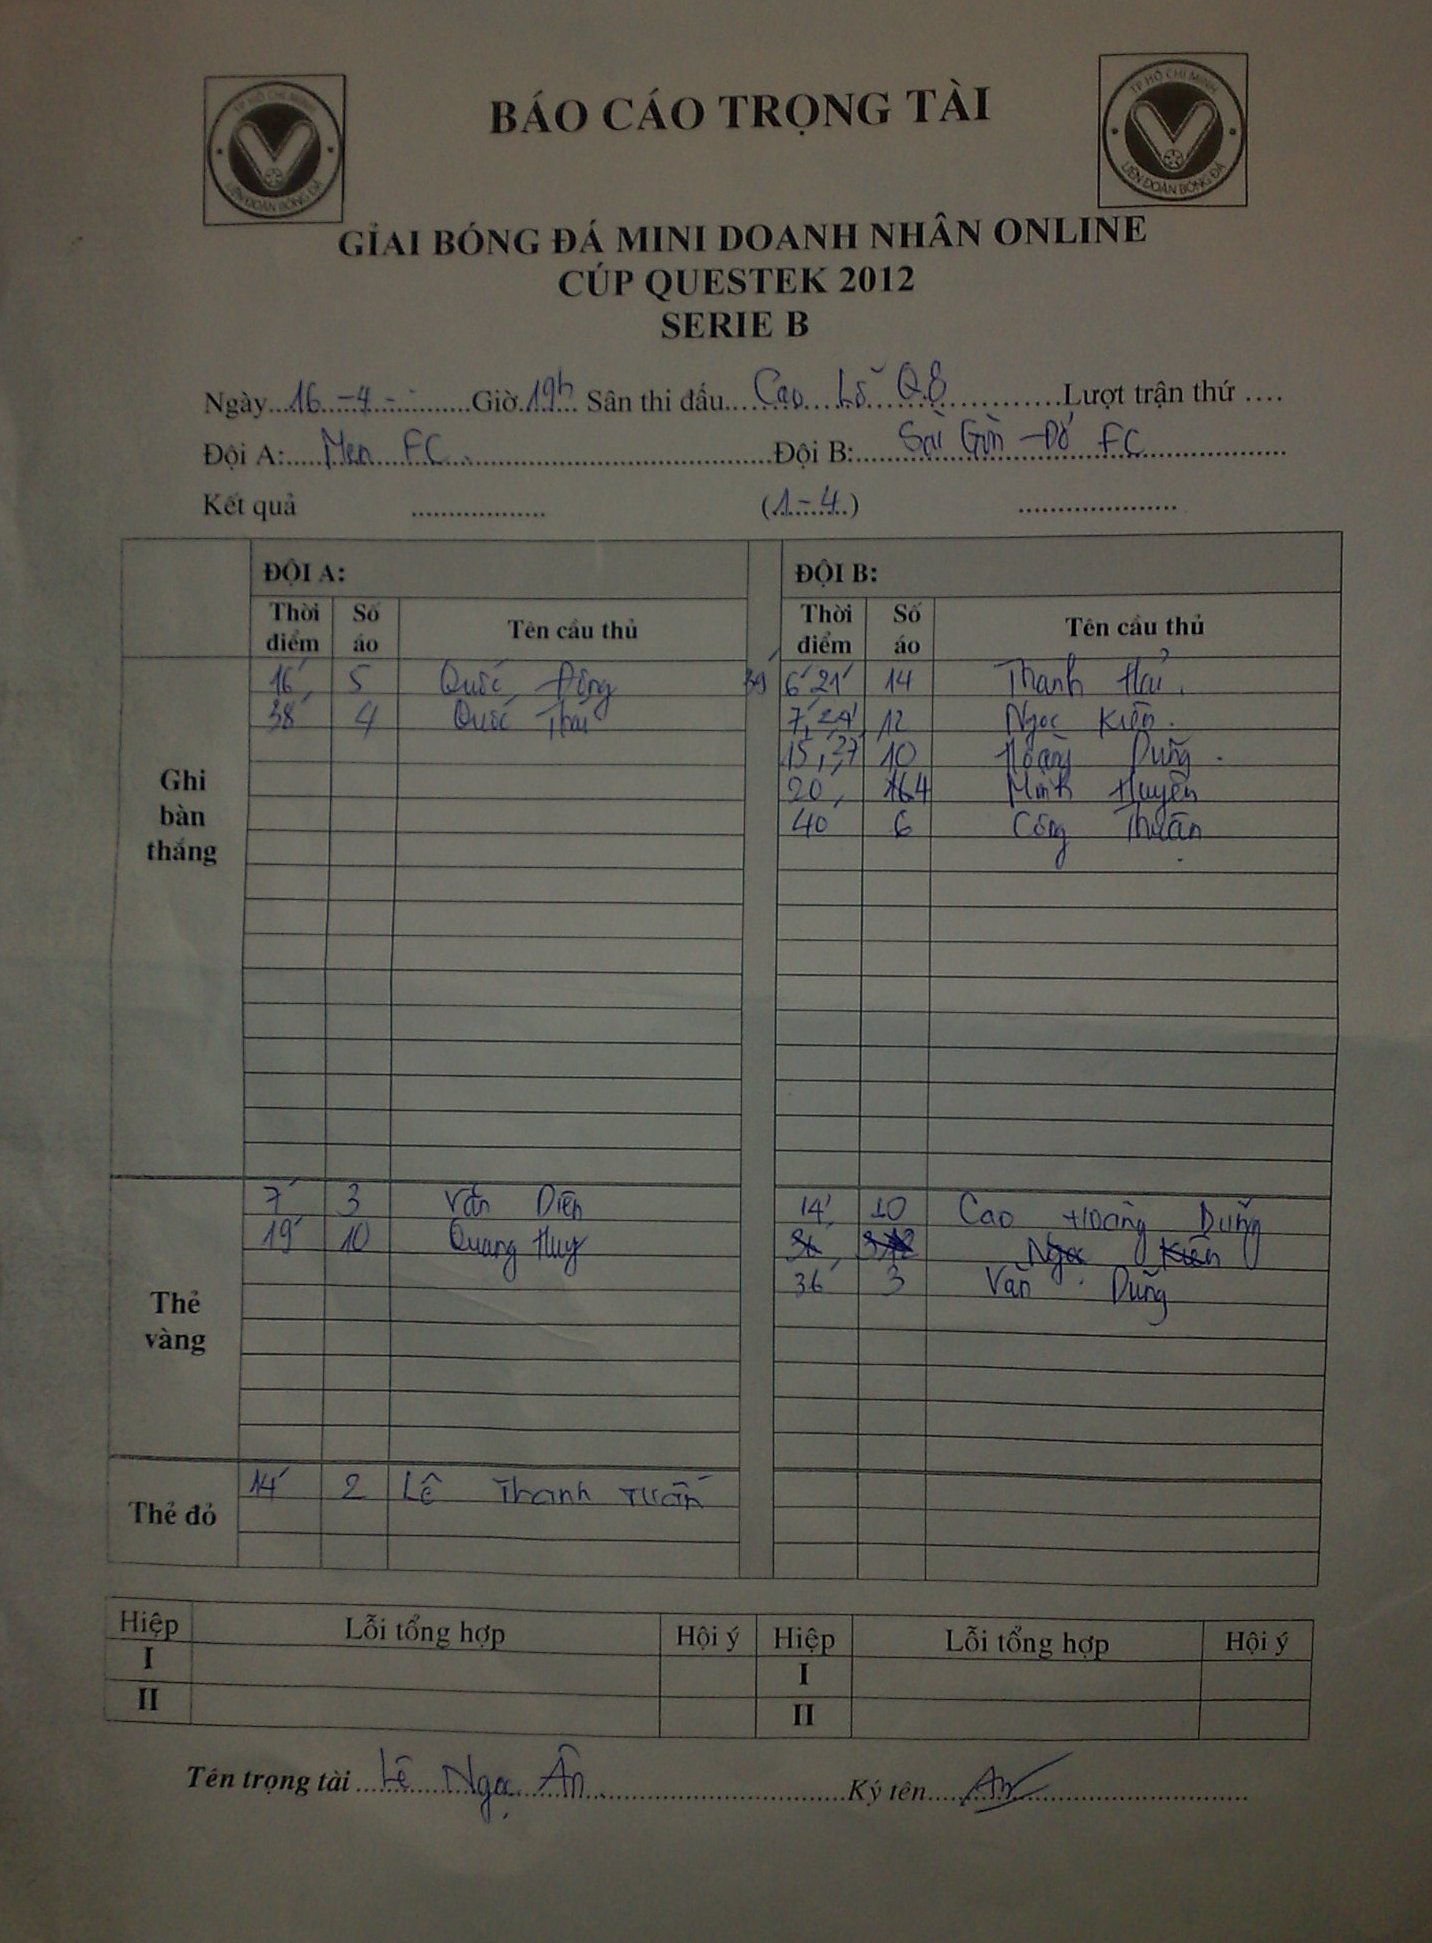 TP HỒ CHÍ MINH
LIÊN ĐOÀN BÓNG ĐÁ
BÁO CÁO TRỌNG TÀI
TP HỒ CHÍ MINH
LIÊN ĐOÀN BÓNG ĐÁ
GIẢI BÓNG ĐÁ MINI DOANH NHÂN ONLINE
CÚP QUESTEK 2012
SERIE B
Ngày...16-4-...Giờ.19h Sân thi đấu...Cao Lỗ Q8...Lượt trận thứ ....
Đội A:...Men FC...Đội B:...Sài Gòn - Đỏ FC...
Kết quả .................. (1-4) ..................
ĐỘI A: ĐỘI B:
Thời điểm Số áo Tên cầu thủ Thời điểm Số áo Tên cầu thủ
Ghi bàn thắng
16' 5 Quốc Đông 39' 6' 21' 14 Thanh Hải
38' 4 Quốc Thái 7', 12 Ngọc Kiên
15', 27' 10 Hoàng Dũng
20' Minh Huyền
40' 6 Công Thuận
Thẻ vàng
7' 3 Văn Diên 14' 10 Cao Hoàng Dũng
19' 10 Quang Huy Ngọc Kiên
36' 3 Văn Dũng
Thẻ đỏ
14' 2 Lê Thanh Tuấn
Hiệp Lỗi tổng hợp Hội ý Hiệp Lỗi tổng hợp Hội ý
I I
II II
Tên trọng tài...Lê Ngọc Ân...Ký tên...Ân...